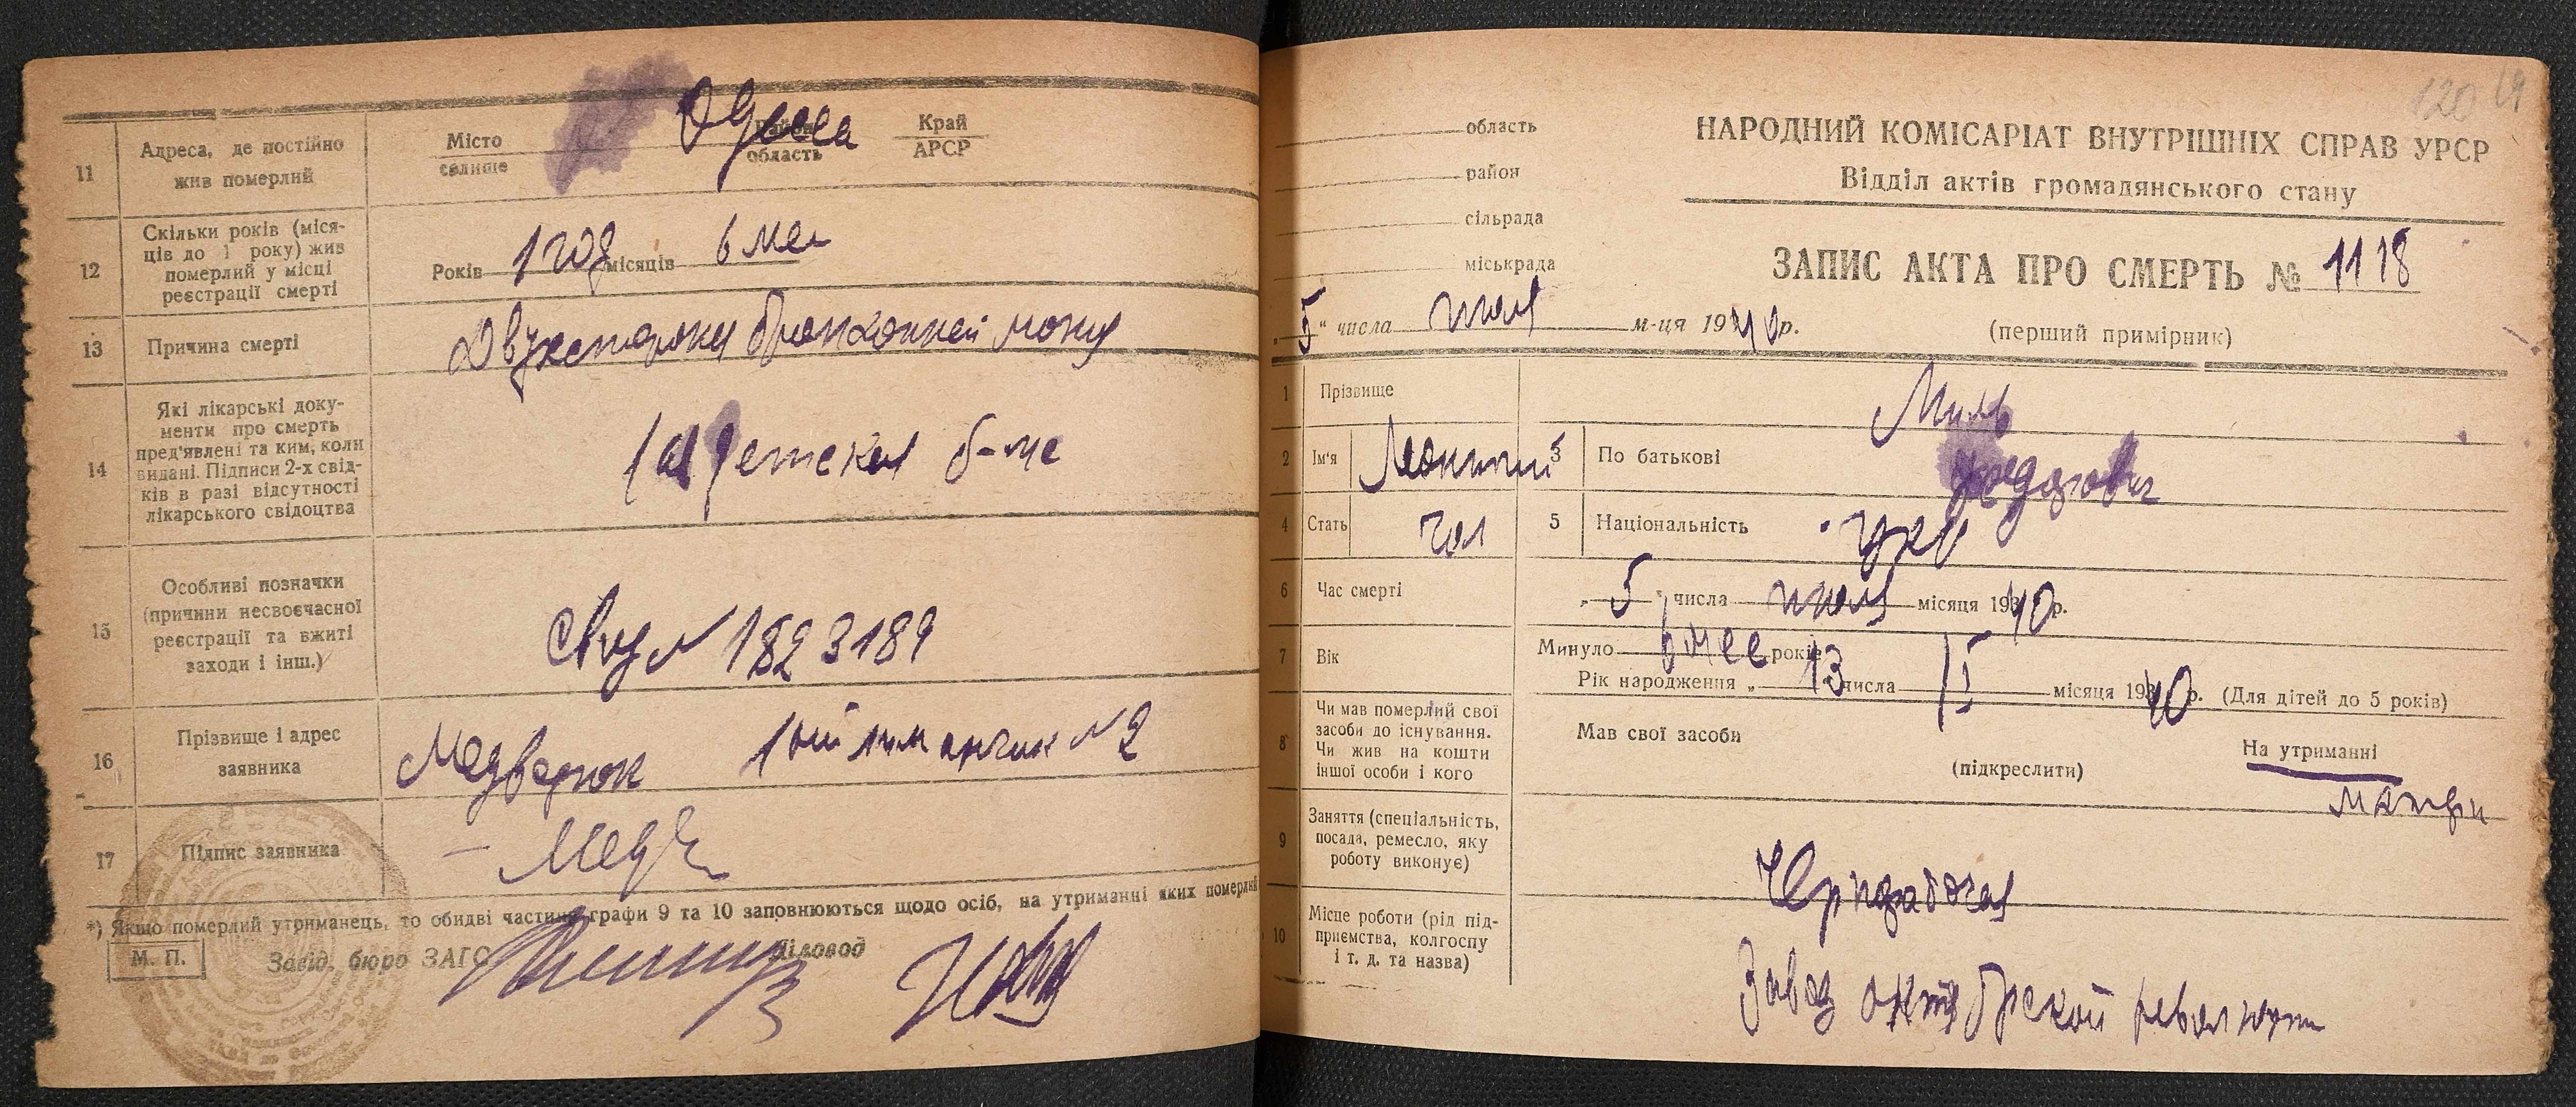 11
Адреса, де постійно
жив померлий
Місто
селище
Одесса
Район
область
Край
АРСР
12
Скільки років (міся-
ців до 1 року) жив
померлий у місці
реєстрації смерті
Років 1 год місяців 6 мес
13
Причина смерті
14
Які лікарські доку-
менти про смерть
пред'явлені та ким, коли
видані. Підписи 2-х свід-
ків в разі відсутності
лікарського свідоцтва
1ая детская б-ца
15
Особливі позначки
(причини несвоєчасної
реєстрації та вжиті
заходи і інш.)
Свид № 1823189
16
Прізвище і адрес
заявника
Медведюк №2
17
Підпис заявника
*) Якщо померлий утриманець, то обидві частини графи 9 та 10 заповнюються щодо осіб, на утриманні яких померлий
М. П.
Завід. бюро ЗАГС
Діловод
120 19
область
район
сільрада
міськрада
НАРОДНИЙ КОМІСАРІАТ ВНУТРІШНІХ СПРАВ УРСР
Відділ актів громадянського стану
ЗАПИС АКТА ПРО СМЕРТЬ № 1118
(перший примірник)
„5“ числа июля м-ця 1940 р.
1
Прізвище
Миль
2
Ім'я
Леонтий
3
По батькові
4
Стать
чол
5
Національність
укр
6
Час смерті
„5“ числа июля місяця 1940 р.
7
Вік
Минуло 6 мес років
Рік народження „13 числа I місяця 1940 р. (Для дітей до 5 років)
8
Чи мав померлий свої
засоби до існування.
Чи жив на кошти
іншої особи і кого
Мав свої засоби
(підкреслити)
На утриманні
матери
9
Заняття (спеціальність,
посада, ремесло, яку
роботу виконує)
Чернорабочая
10
Місце роботи (рід під-
приємства, колгоспу
і т. д. та назва)
Завод октябрской революции